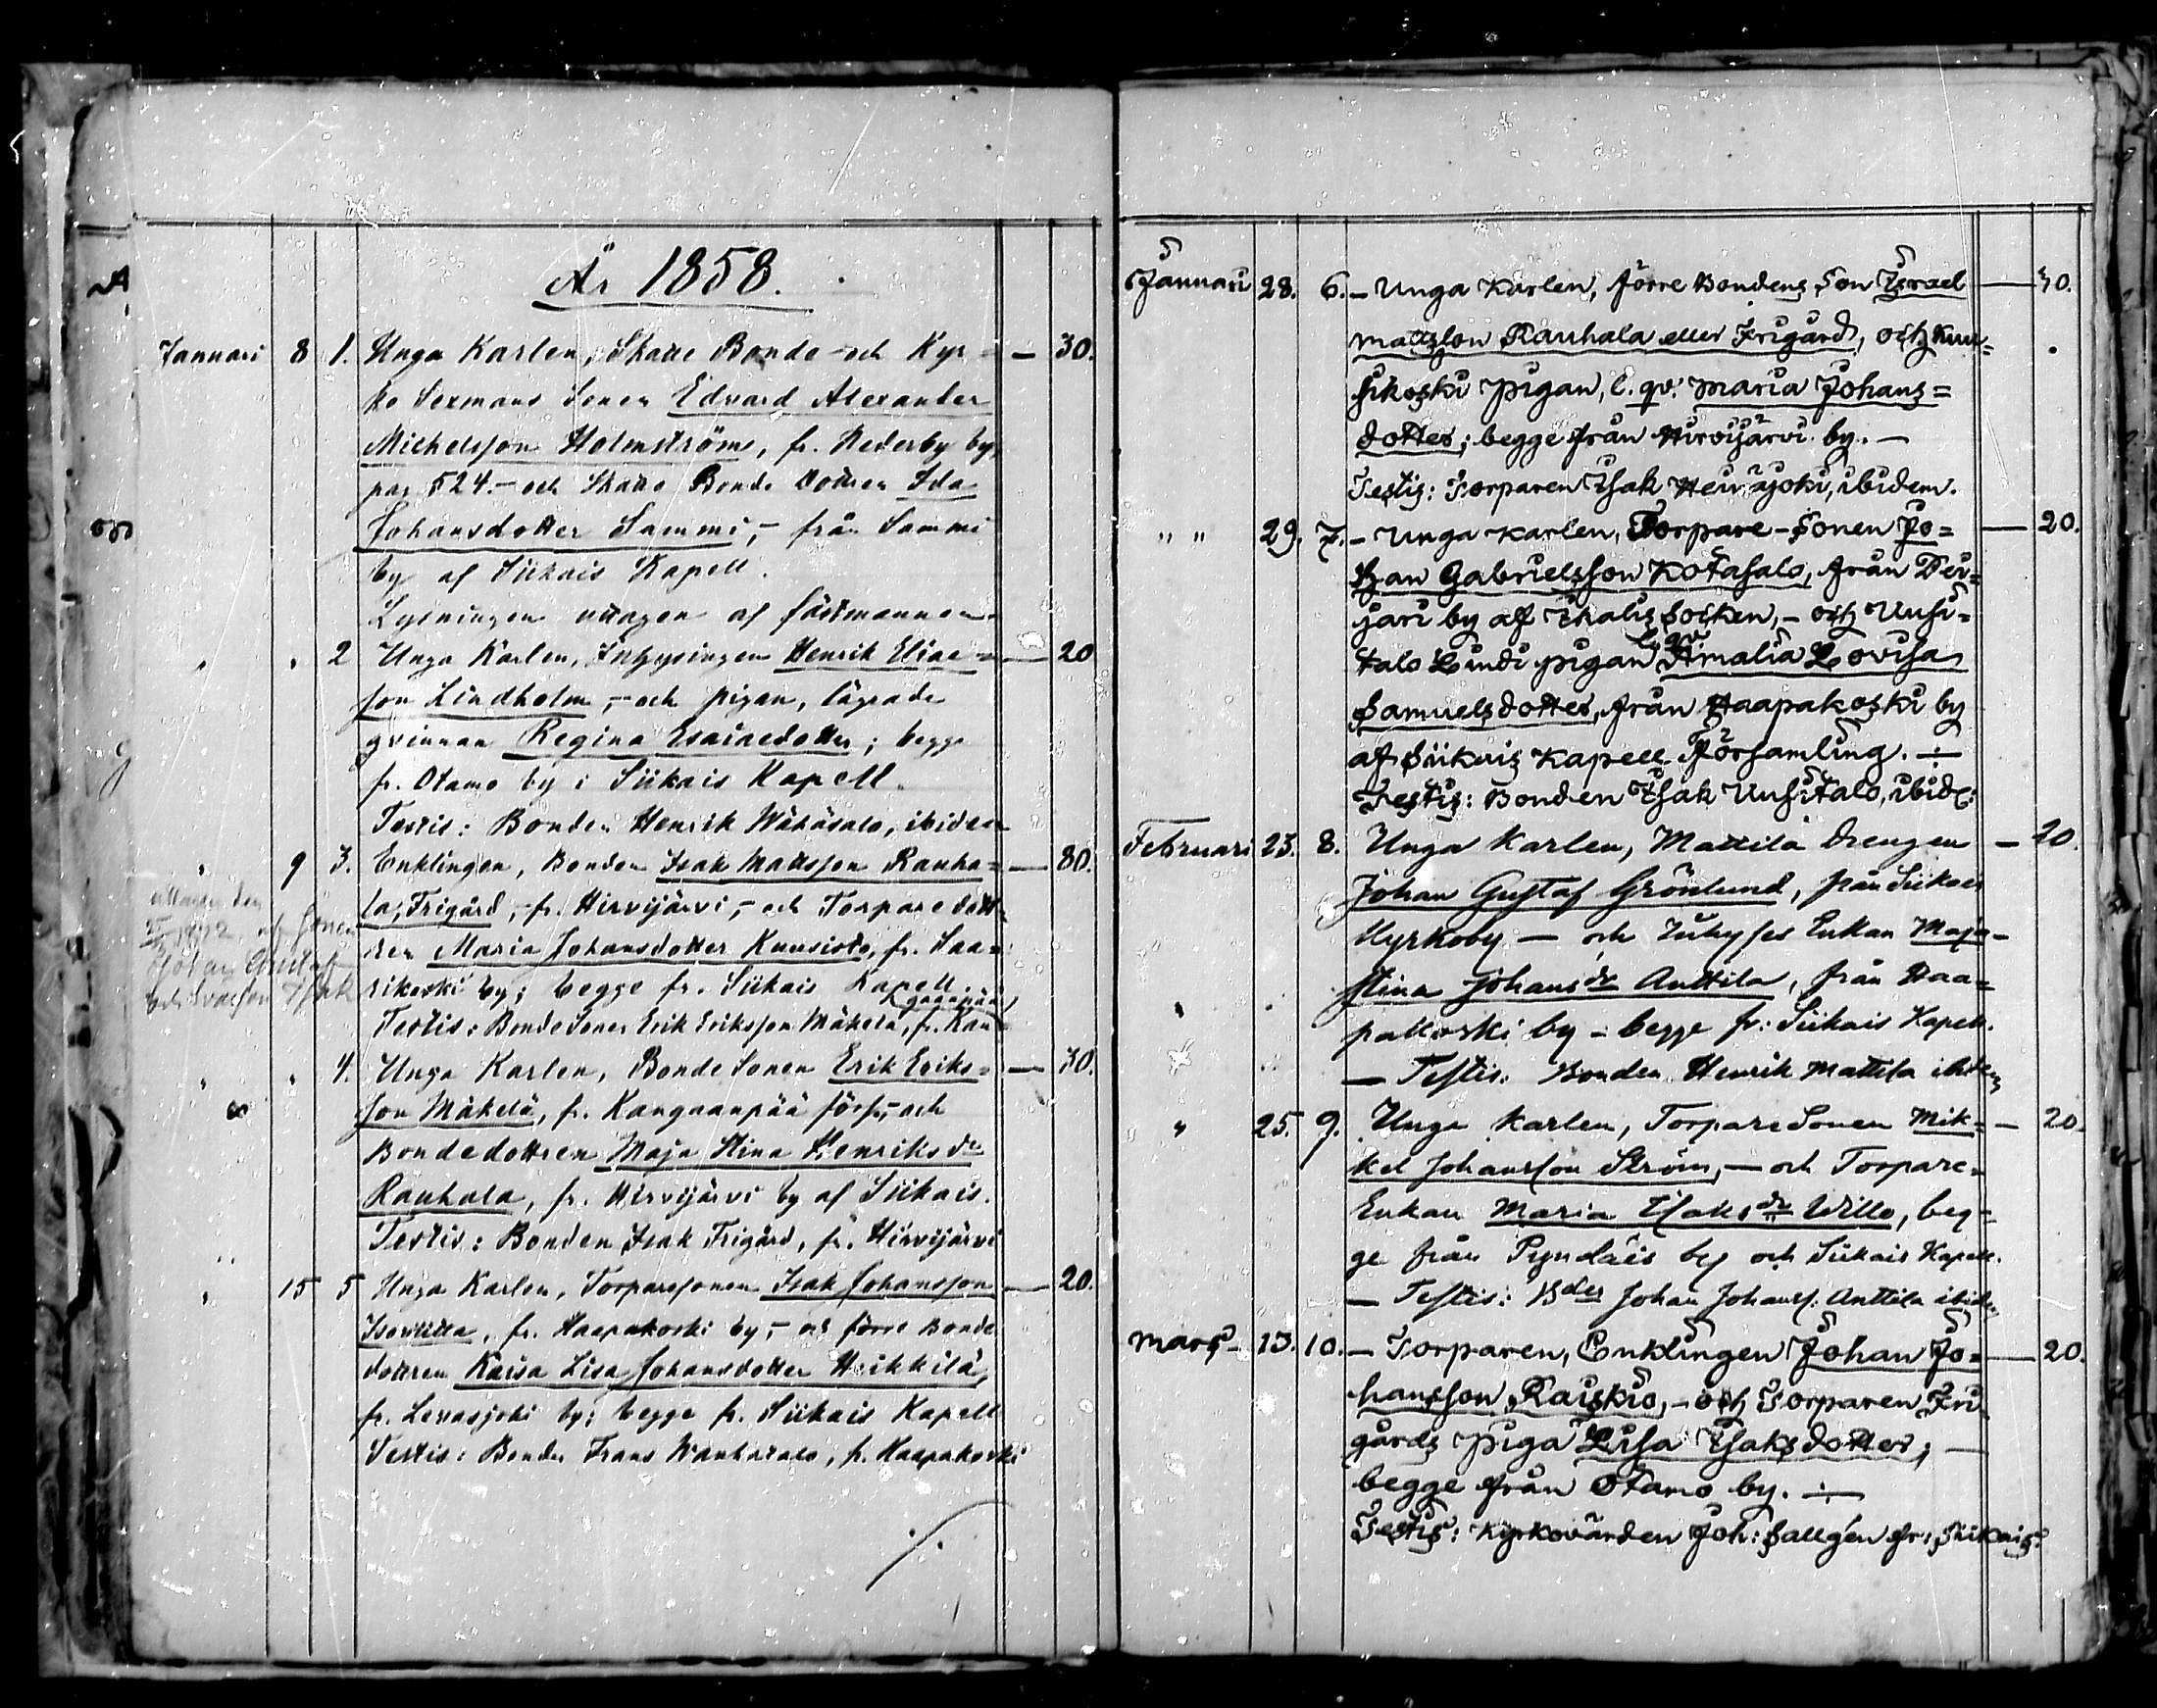 År 1858.
Januari 8 1. Unga Karlen, Skatte Bonde och Kyr= — 30.
ko Sexmans Sonen Edvard Alexander
Michelsson Holmström, fr. Nederby by,
pag 524.- och Skatte Bonde Dottren Ida
Johansdotter Sammi,- från Sammi
by af Siikais Kapell.
Lysningen uttagen af fästmannen
" " 2 Unga Karlen, Inhysingen Henrik Eliae= — 20
son Lindholm,- och pigan, lägrade
qvinnan Regina Esaiaedotter; begge
fr. Otamo by i Siikais Kapell.
Testis: Bonden Henrik Wähäsalo, ibidem
" 9 3. Enklingen, Bonden Isak Mattsson Rauha= — 80.
la, Frigård,- fr. Hirvijärvi,- och Torpare dott=
ren Maria Johansdotter Kuusisto, fr. Saa=
rikoski by; begge fr. Siikais Kapell.
Testis: Bonde Sonen Erik Eriksson Mäkelä, fr. Kan
gaanpää
uttagen den
1912. af Sonen
Johan Gustaf
Isak
" " 4. Unga Karlen, Bonde Sonen Erik Eriks= — 30.
son Mäkelä, fr. Kangaanpää förs,- och
Bondedottren Maja Stina Henriksdr
Rauhala, fr. Hirvijärvi by af Siikais.
Testis: Bonden Isak Frigård, fr. Hirvijärvi
" 15 5 Unga Karlen, Torparesonen Isak Johansson — 20.
fr. Haapakoski by,- och förre Bonde
dottren Kaisa Lisa Johansdotter Heikkilä,
fr. Leväsjoki by; begge fr. Siikais Kapell
Testis: Bonden Frans Wanhatalo, fr. Haapakoski
Januari 28. 6. – Unga Karlen, förre Bondens Son Israel — 30.
Mattsson Rauhala eller Frigård, och Kuu=
sikoski pigan, l. qv. Maria Johans=
dotter; begge från Hirvijärvi by. —
Testis: Torparen Isak Heinäjoki, ibidem.
" " 29. 7. – Unga Karlen, Torpare-Sonen Jo= — 20.
han Gabrielsson Kotasalo, från Ter=
jari by af Ikalis Socken,- och Uusi=
talo Lindi pigan l. qv. Amalia Lovisa
Samuelsdotter, från Haapakoski by
af Siikais Kapell Församling. ÷
Testis: Bonden Isak Uusitalo, ibid:
Februari 23. 8. Unga Karlen, Mattila Drengen — 20.
Johan Gustaf Grönlund, från Siikais
Kyrkoby — och Inhyses Enkan Maja
Stina Johansdr Anttila, från Haa=
pakoski by - begge fr: Siikais Kapell.
— Testis: Bonden Henrik Mattila ibidem
" 25. 9. Unga Karlen, TorpareSonen Mik= — 20.
kel Johansson Ström, — och Torpare=
Enkan Maria Isaksdr Willo, beg=
ge från Pyndäis by och Siikais Kapell.
— Testis: Bden Johan Johanss. Anttila ibidem
Mars 13. 10. – Torparen, Enklingen Johan Jo= — 20.
hansson Raiskio,- och Torparen Fri
gårds piga Lisa Isaksdotter; —
begge från Otamo by. ÷
Testis: Kyrkovärden Joh: Sallgén fr: Siikais.